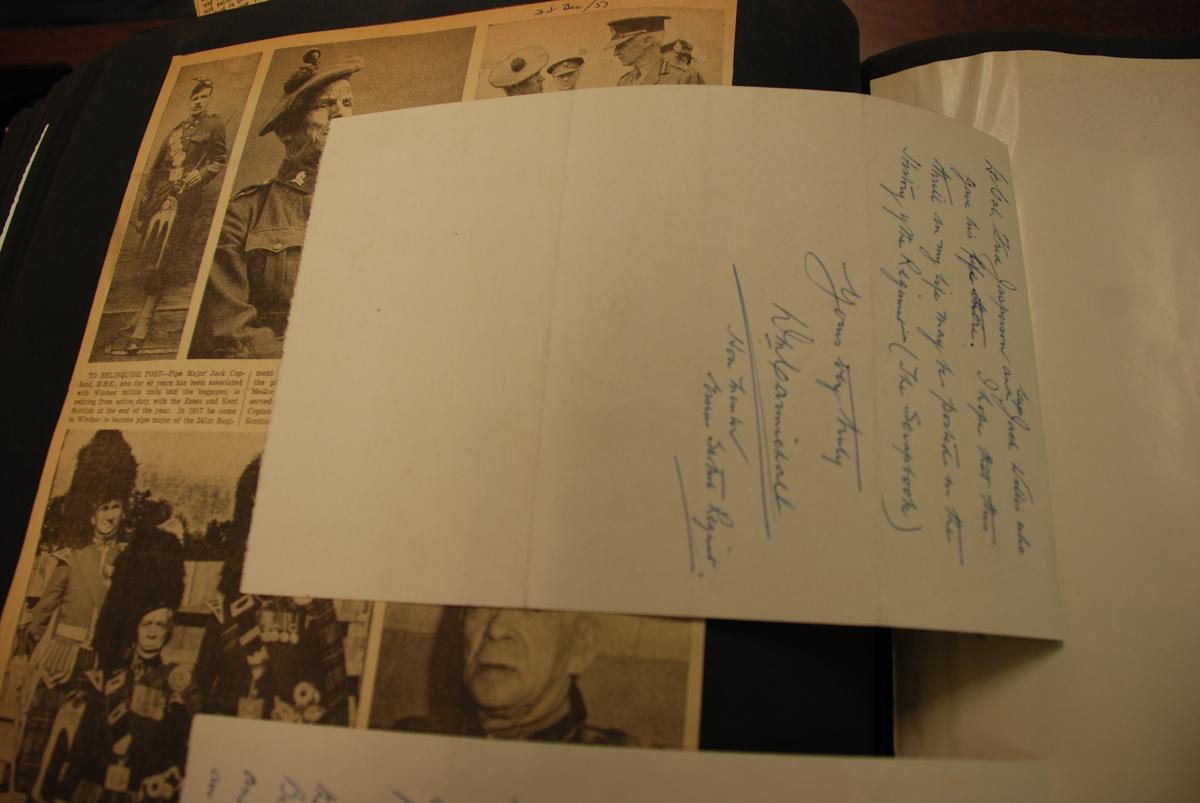 28 Dec/57
TO RELINQUISH POST—Pipe Major Jock Cop-
land, M.B.E., who for 40 years has been associated
with Windsor militia units and the bagpipes, is
retiring from active duty with the Essex and Kent
Scottish at the end of the year. In 1917 he came
to Windsor to become pipe major of the 241st Regi-
ment
the pi
served
Scottis
Jasperson and Capt Jack who
gave his life there. I hope that this
thrill in my life may be posted in the
History of the Regiment (The Scrapbook)
Yours very truly
Hon Member
Essex Scottish Regiment.